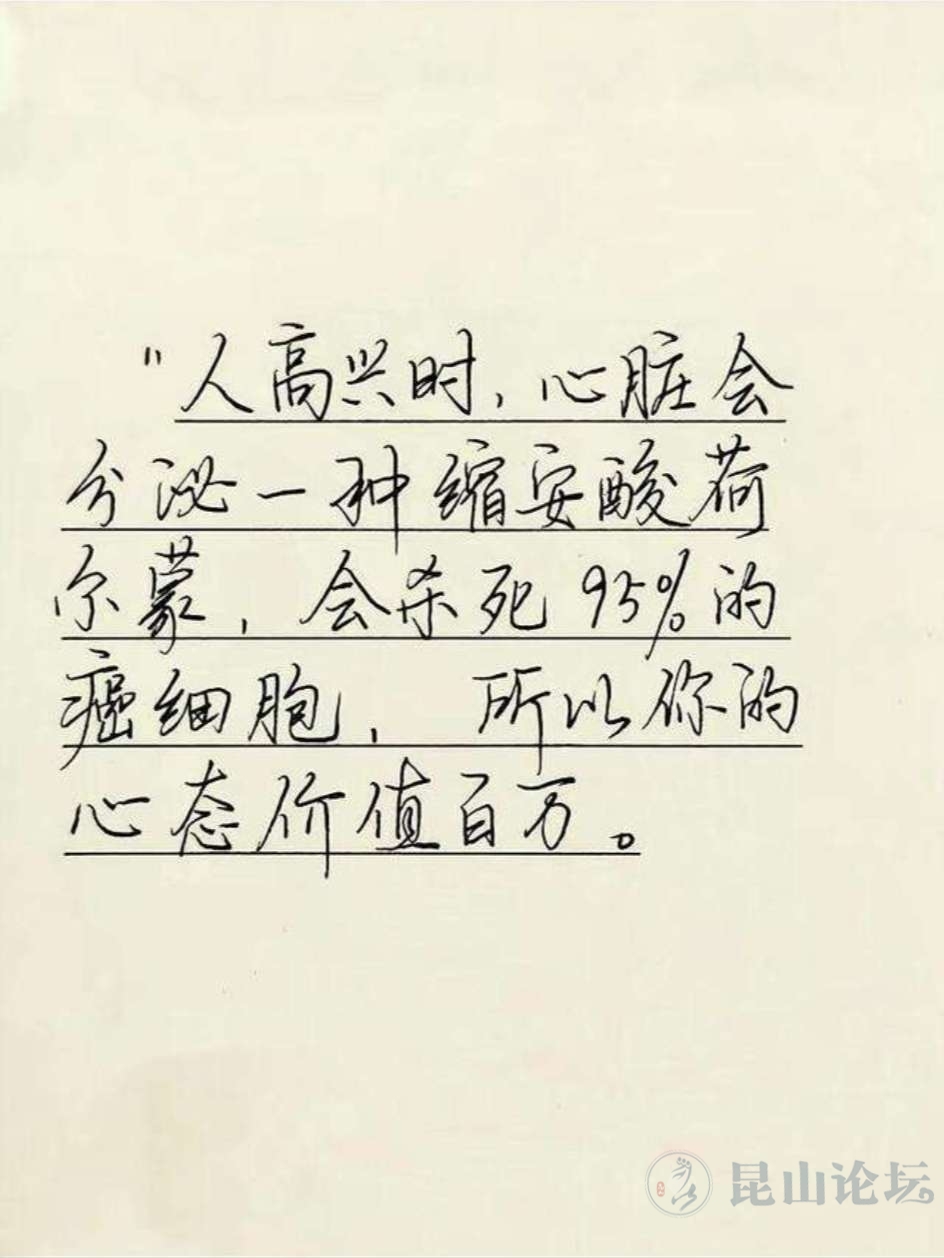 "人高兴时,心脏会
分泌一种缩安酸荷
尔蒙,会杀死95%的
癌细胞,所以你的
心态价值百万。
昆山论坛